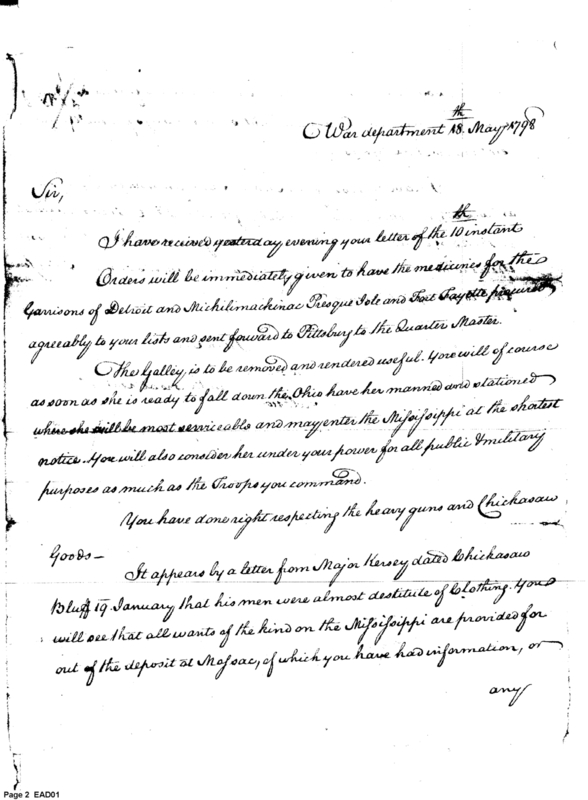 War department 18th. May 1798
Sir,
I have received yesterday evening your letter of the 10th instant
Orders will be immediately given to have the medicines for the
Garrisons of Detroit and Michilimackinac Presque Isle and Fort Fayette procured
agreeably to your lists and sent forward to Pittsburg to the Quarter Master.
The Galley, is to be removed and rendered useful. You will of course
as soon as she is ready to fall down the Ohio have her manned and stationed
where she will be most serviceable and may enter the Mississippi at the shortest
notice. You will also consider her under your power for all public & military
purposes as much as the Troops you command.
You have done right respecting the heavy guns and Chickasaw
Goods—
It appears by a letter from Major Kersey dated Chickasaw
Bluff 19 January that his men were almost destitute of Clothing. You
will see that all wants of the kind on the Mississippi are provided for
out of the deposit at Massac, of which you have had information, or
any
Page 2 EAD01